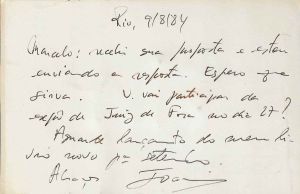 Rio, 9/8/84
Marcelo: recebi sua proposta e estou
enviando a resposta. Espero que
sirva. V. vai participar da
expô de Juiz de Fora no dia 27?
Aguarde lançamento do meu li-
vro novo pª setembro.
Abraços